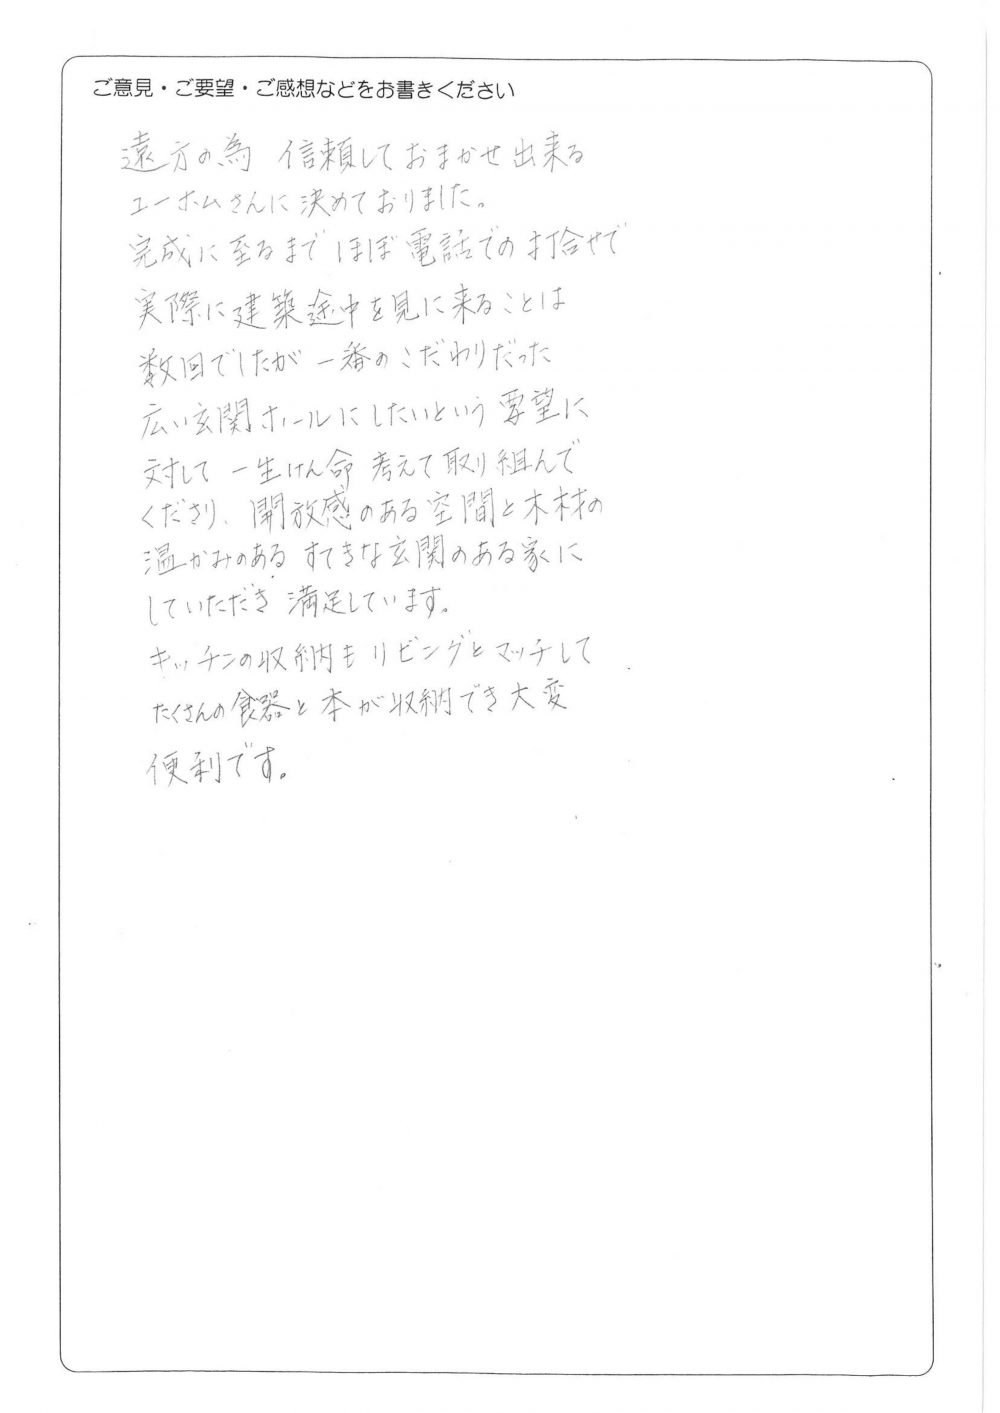 ご意見・ご要望・ご感想などをお書きください
遠方の為 信頼しておまかせ出来る
ユーホムさんに決めておりました。
完成に至るまで ほぼ電話での打合せで
実際に建築途中を見に来ることは
数回でしたが 一番のこだわりだった
広い玄関ホールにしたいという要望に
対して 一生けん命 考えて取り組んで
くださり、開放感のある空間と木材の
温かみのある すてきな玄関のある家に
していただき 満足しています。
キッチンの収納もリビングとマッチして
たくさんの食器と本が収納でき大変
便利です。